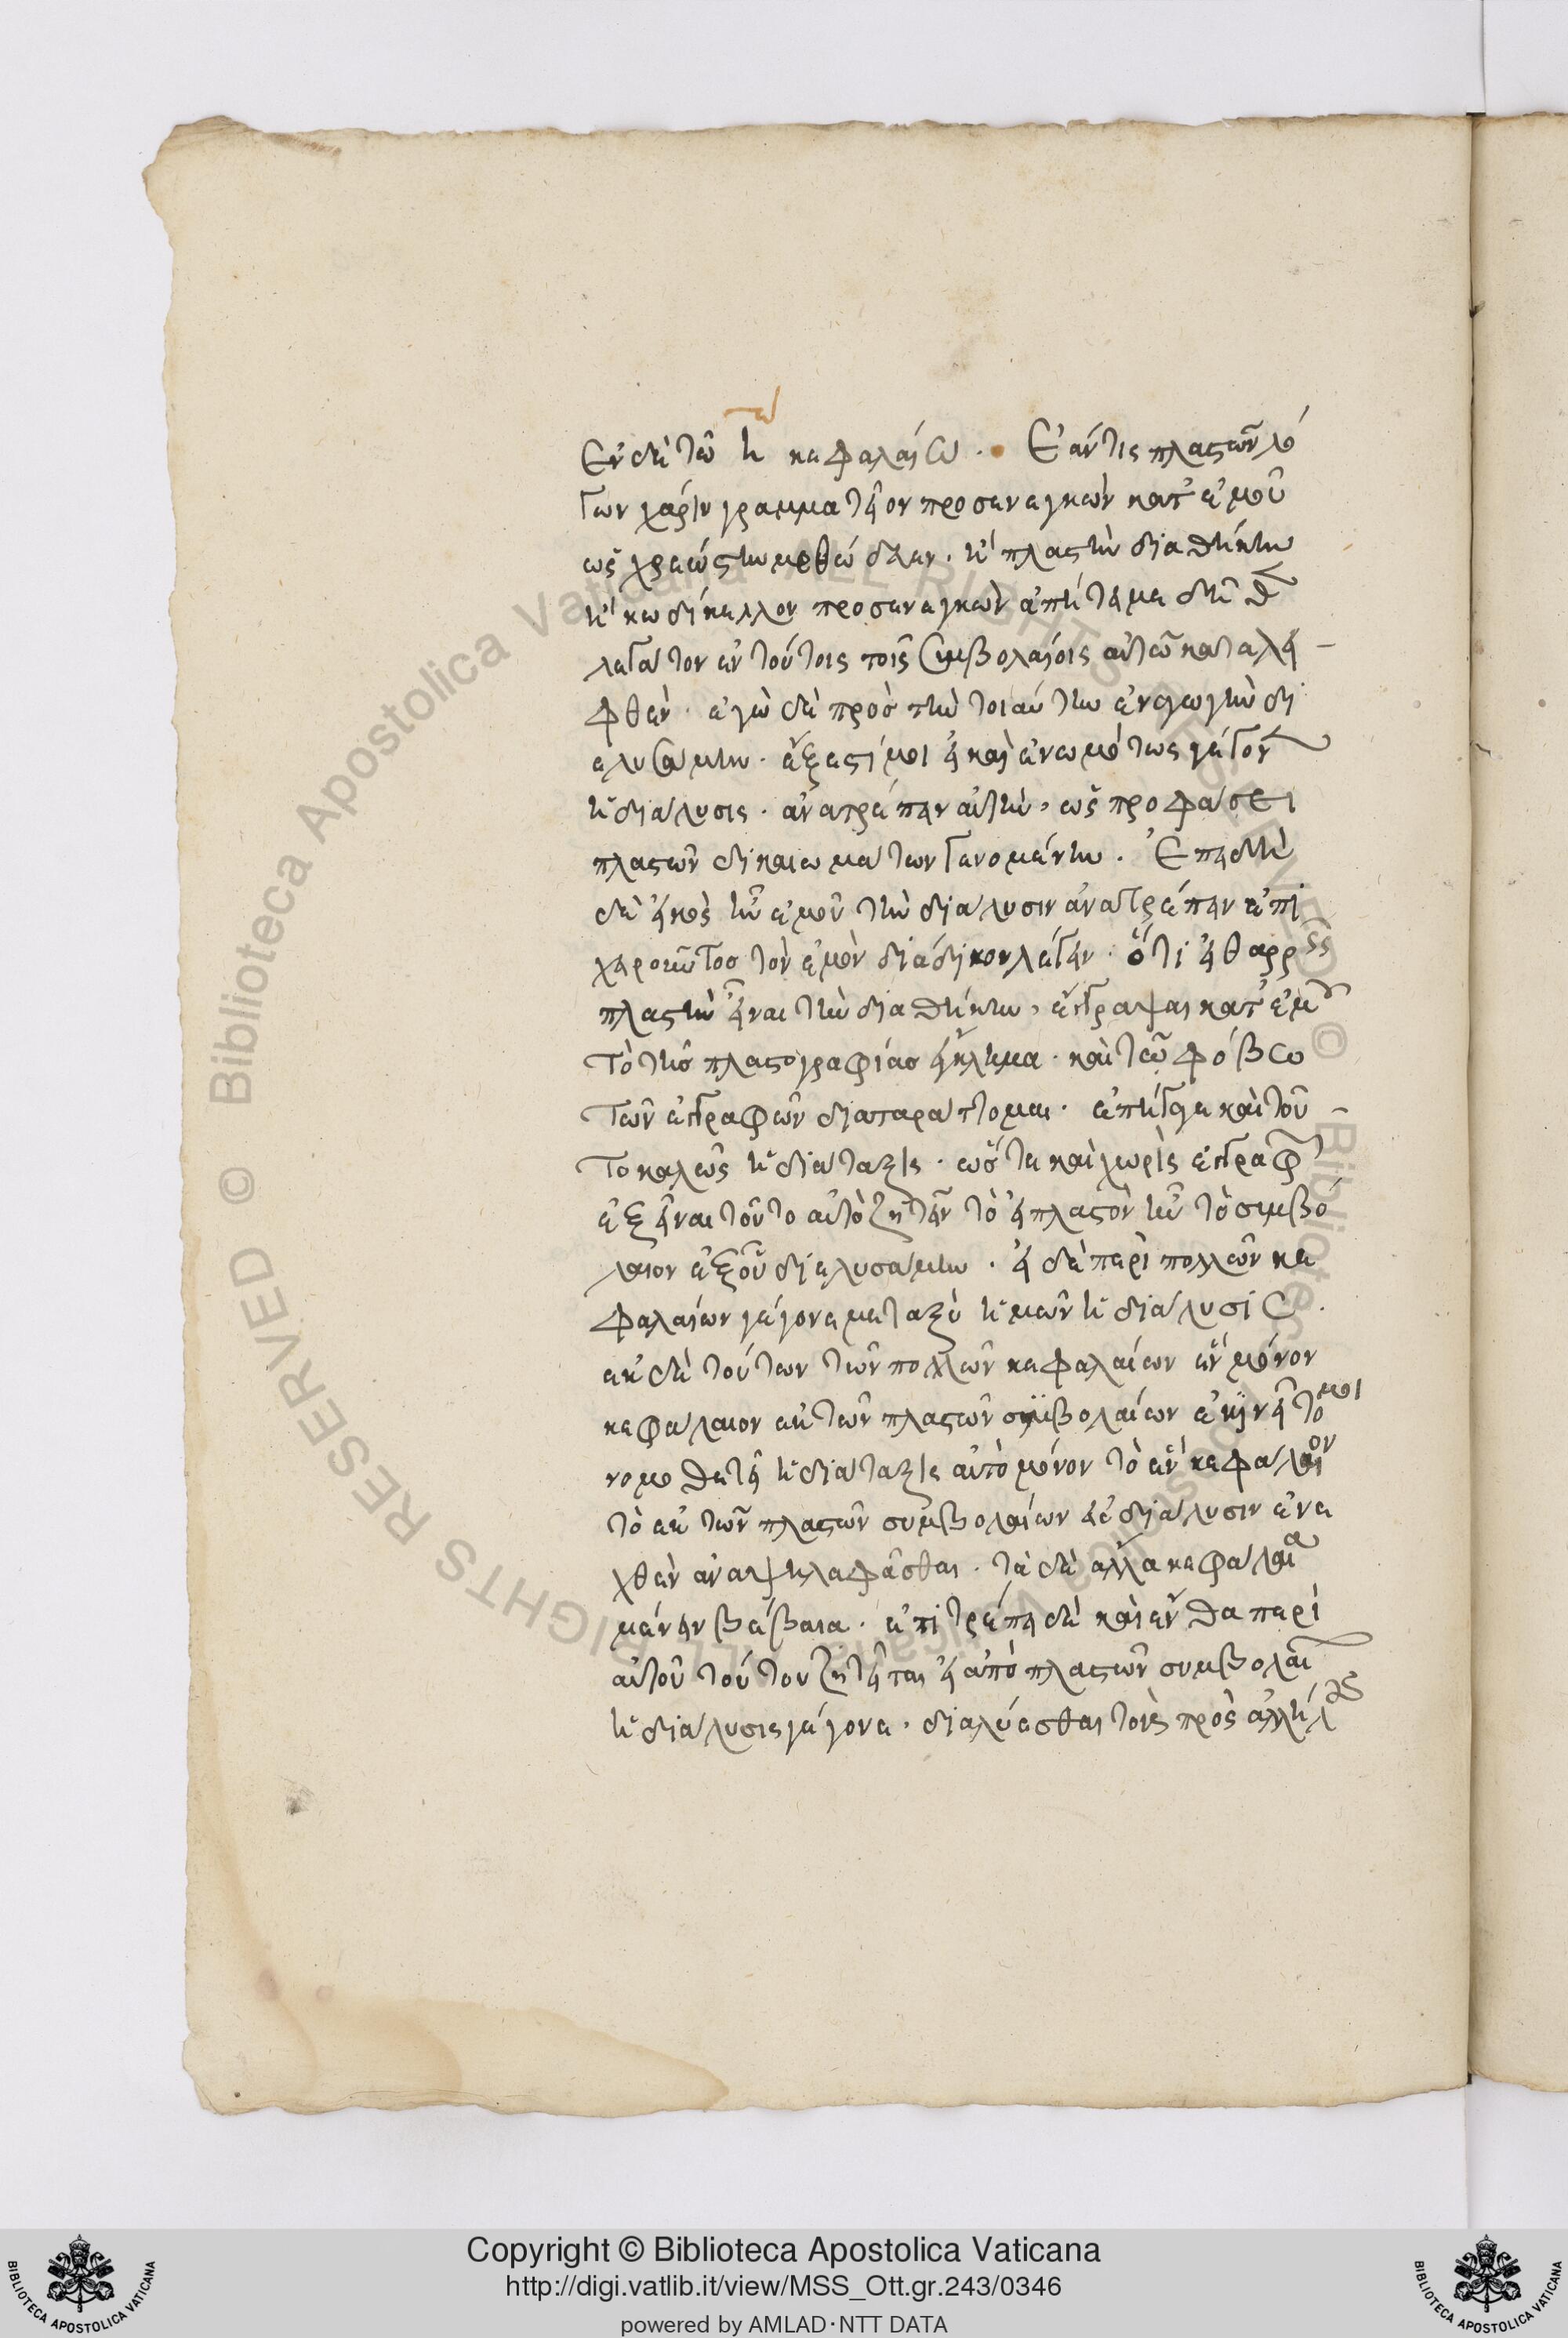 Ἐν δὲ τῶ η κεφαλαίω. Ἐάν τις πλαστῶν λό
γων χάριν γραμματεῖον προσενεγκὼν κατ' ἐμοῦ
ὡς χρεώστην μεθώδευεν. ἢ πλαστὴν διαθήκην
ἢ κωδίκελλον προσενεγκὼν ἀπήτει με δῆθεν
λεγάτον ἐν τούτοις τοῖς συμβολαίοις αὐτῶ καταλει
φθέν. ἐγὼ δὲ πρὸς τὴν τοιαύτην ἐναγωγὴν δι
ελυσάμην. ἔξεστί μοι εἰ καὶ ἐνωμότως γέγονεν
ἡ διάλυσις. ἀνατρέπειν αὐτὴν, ὡς προφάσει
πλαστῶν δικαιωμάτων γενομένην. Ἐπειδὴ
δὲ εἰκὸς ἦν ἐμοῦ τὴν διάλυσιν ἀνατρέπειν ἐπι
χειροῦντος τὸν ἐμὸν διάδικον λέγειν. ὅτι εἰ θαρρεῖς
πλαστὴν εἶναι τὴν διαθήκην, ἔγγραψαι κατ' ἐμοῦ
τὸ τῆς πλαστογραφίας ἔγκλημα. καὶ τῶ φόβω
τῶν ἐγγραφῶν διαταράττομαι. ἐπήγαγε καὶ τοῦ
το καλῶς ἡ διάταξις. ὥστε καὶ χωρὶς ἐγγραφῆς
ἐξεῖναι τοῦτο αὐτὸ ζητεῖν τὸ εἰ πλαστὸν ἦν τὸ συμβό
λαιον ἐξ οὗ διελυσάμην. εἰ δὲ περὶ πολλῶν κε
φαλαίων γέγονε μεταξὺ ἡμῶν ἡ διάλυσις.
ἐκ δὲ τούτων τῶν πολλῶν κεφαλαίων ἓν μόνον
κεφάλαιον ἐκ τῶν πλαστῶν συμβολαίων ἐκινεῖτό μοι
νομοθετεῖ ἡ διάταξις αὐτὸ μόνον τὸ ἓν κεφάλαιον
τὸ ἐκ τῶν πλαστῶν συμβολαίων εἰς διάλυσιν ἐνε
χθὲν ἀναψηλαφᾶσθαι. τὰ δὲ ἄλλα κεφάλαια
μένειν βέβαια. ἐπιτρέπει δὲ καὶ ἔνθα περὶ
αὐτοῦ τούτου ζητεῖται εἰ ἀπὸ πλαστῶν συμβολαίων
ἡ διάλυσις γέγονε. διαλύεσθαι τοῖς πρὸς ἀλλήλους
Copyright © Biblioteca Apostolica Vaticana
http://digi.vatlib.it/view/MSS_Ott.gr.243/0346
powered by AMLAD·NTT DATA
BIBLIOTECA APOSTOLICA VATICANA
BIBLIOTECA APOSTOLICA VATICANA